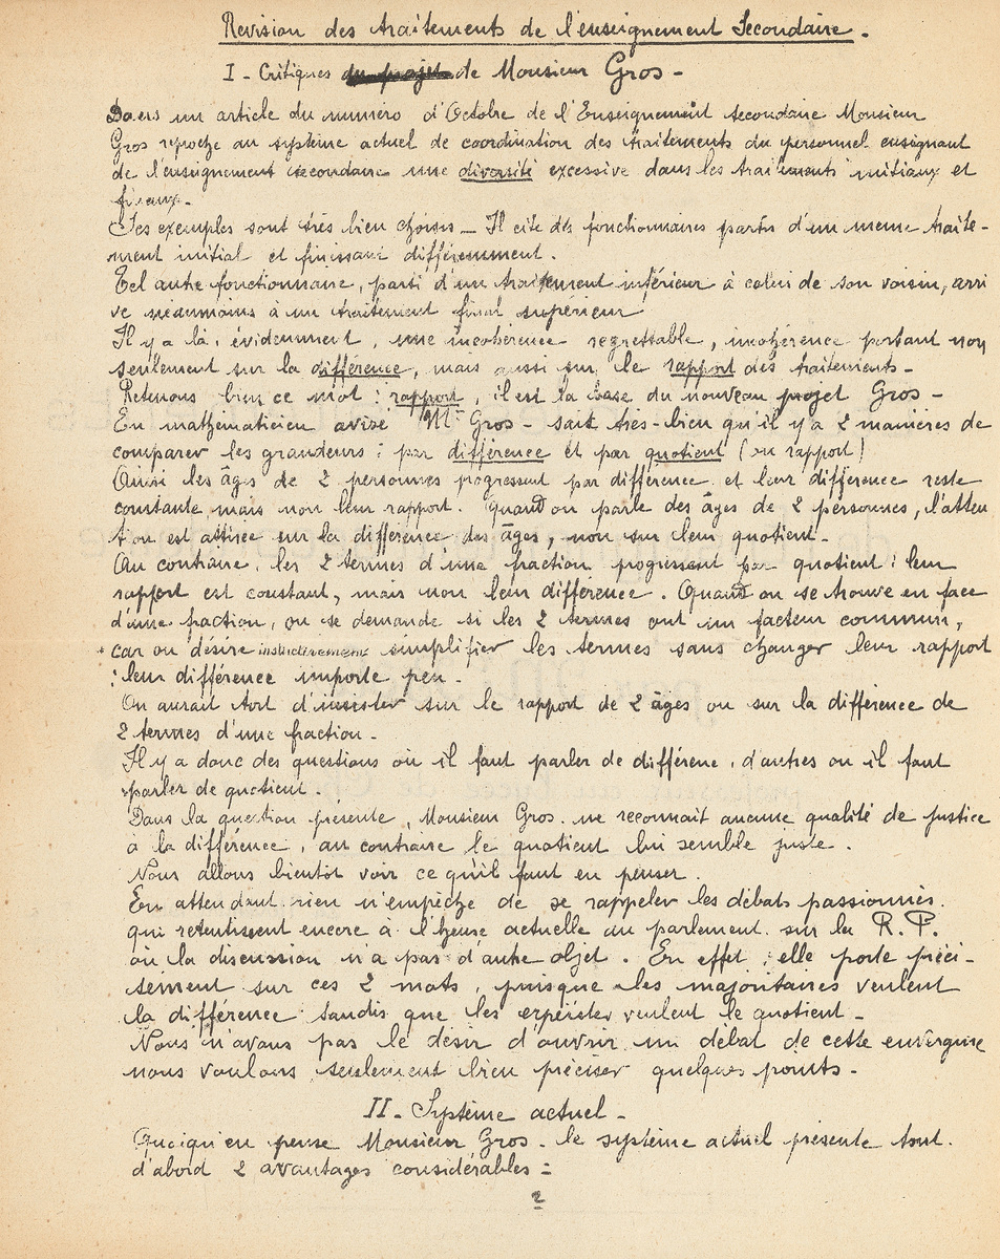 Revision des traitements de l'enseignement Secondaire.
I - Critiques de Monsieur Gros -
Dans un article du numéro d'Octobre de l'Enseignement secondaire Monsieur
Gros reproche au système actuel de coordination des traitements du personnel enseignant
de l'enseignement secondaire une diversité excessive dans les traitements initiaux et
finaux.
Ses exemples sont très bien choisis - Il cite des fonctionnaires partis d'un meme traite-
ment initial et finissant différemment.
Tel autre fonctionnaire, parti d'un traitement inférieur à celui de son voisin, arri
ve néanmoins à un traitement final supérieur
Il y a là, évidemment, une incohérence regrettable, incohérence portant non
seulement sur la différence, mais aussi sur le rapport des traitements -
Retenons bien ce mot : rapport, il est la base du nouveau projet Gros -
En mathématicien avisé Mr Gros - sait très-bien qu'il y a 2 manières de
comparer les grandeurs : par différence et par quotient (ou rapport)
Ainsi les âges de 2 personnes progressent par différence et leur différence reste
constante mais non leur rapport. Quand on parle des âges de 2 personnes, l'atten
tion est attirée sur la différence des âges, non sur leur quotient -
Au contraire, les 2 termes d'une fraction progressent par quotient : leur
rapport est constant, mais non leur différence. Quand on se trouve en face
d'une fraction, on se demande si les 2 termes ont un facteur commun,
car on désire simplifier les termes sans changer leur rapport
: leur différence importe peu -
On aurait tort d'insister sur le rapport de 2 âges ou sur la différence de
2 termes d'une fraction -
Il y a donc des questions où il faut parler de différence, d'autres où il faut
parler de quotient.
Dans la question présente, Monsieur Gros ne reconnait aucune qualité de justice
à la différence, au contraire le quotient lui semble juste.
Nous allons bientôt voir ce qu'il faut en penser.
En attendant rien n'empêche de se rappeler les débats passionnés
qui retentissent encore à l'heure actuelle au parlement sur la R.P.
où la discussion n'a pas d'autre objet. En effet, elle porte préci-
sément sur ces 2 mots, puisque les majoritaires veulent
la différence tandis que les erpéistes veulent le quotient -
Nous n'avons pas le désir d'ouvrir un débat de cette envergure
nous voulons seulement bien préciser quelques points -
II - Système actuel -
Quoiqu'en pense Monsieur Gros - le système actuel présente tout
d'abord 2 avantages considérables :
2